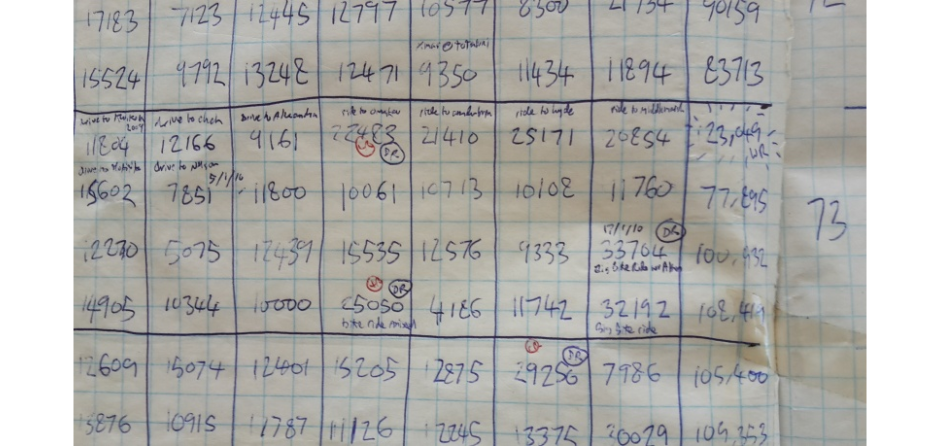 17183 7123 12445 12797 10577 8300 21734 90159
Xmas @
15524 9792 13248 12471 9350 11434 11894 83713
drive to drive to drive to Alexandra ride to ride to ride to ride to
11804 12166 9161 22483 21410 25171 20854 123,049
DR WR
drive to drive to Nelson
15602 7851 5/1/10 11800 10061 10713 10108 11760 77,895
73
17/1/10 DR
12270 5075 12439 15535 12576 9333 33704 100,932
Big Bike Ride
DR
14905 10344 10000 25050 4186 11742 32192 108,419
bike ride Big bike ride
DR
12609 15074 12401 15205 12875 29256 7986 105,400
13876 10915 11787 11126 12245 13375 30029 103,353